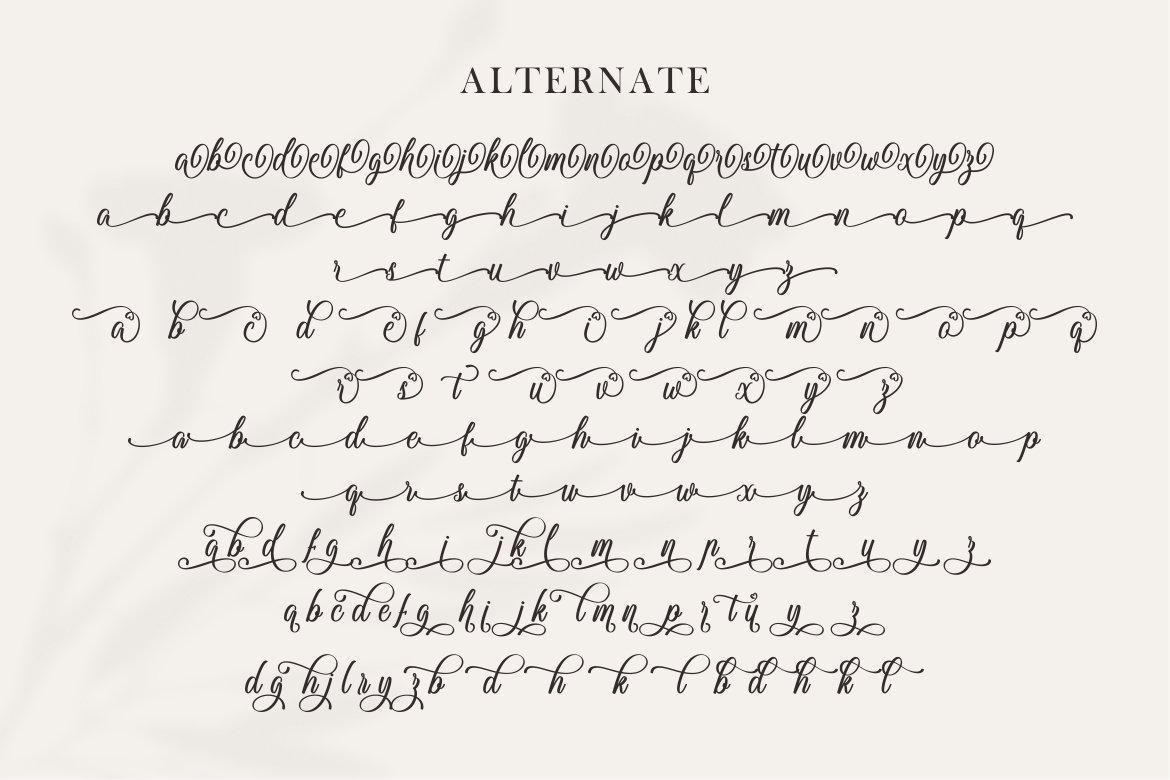 ALTERNATE
abcdefghijklmnopqrstuvwxyz
a b c d e f g h i j k l m n o p q
r s t u v w x y z
a b c d e f g h i j k l m n o p q
r s t u v w x y z
a b c d e f g h i j k l m n o p
q r s t u v w x y z
a b d f g h i j k l m n p r t u y z
a b c d e f g h i j k l m n p r t y y z
d g h j l r y z b d h k l b d h k l